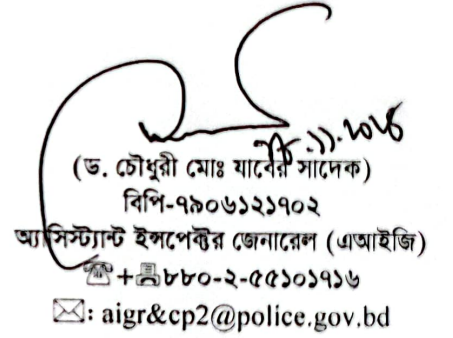 (ড. চৌধুরী মোঃ যাবের সাদেক)
বিপি-৭৯০৬১২১৭০২
অ্যাসিস্ট্যান্ট ইন্সপেক্টর জেনারেল (এআইজি)
☎+🖷৮৮০-২-৫৫১০১৭১৬
✉: aigr&cp2@police.gov.bd